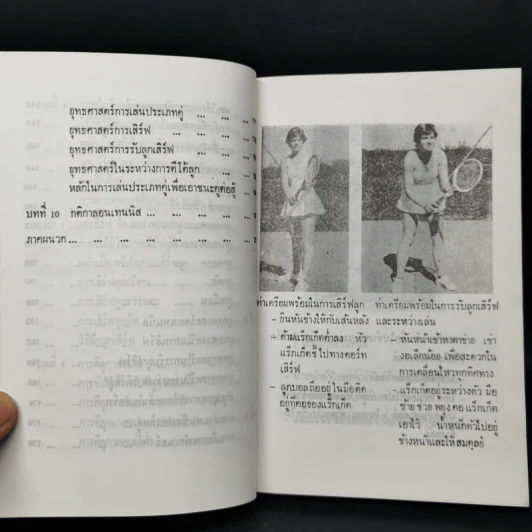 ยุทธศาสตร์การเล่นประเภทคู่ ... ... ...
ยุทธศาสตร์การเสิร์ฟ ... ... ...
ยุทธศาสตร์การรับลูกเสิร์ฟ ... ... ...
ยุทธศาสตร์ในระหว่างการตีโต้ลูก ... ...
หลักในการเล่นประเภทคู่เพื่อเอาชนะคู่ต่อสู้
บทที่ 10 กติกาลอนเทนนิส ... ... ... ... ...
ภาคผนวก ... ... ... ... ... ... ...
ท่าเตรียมพร้อมในการเสิร์ฟลูก
- ยืนหันข้างให้กับเส้นหลัง
- ด้ามแร็กเก็ตต่ำลง หัว
แร็กเก็ตชี้ไปทางคอร์ท
เสิร์ฟ
- ลูกบอลถืออยู่ในมือติด
อยู่ที่คอของแร็กเก็ต
ท่าเตรียมพร้อมในการรับลูกเสิร์ฟ
และระหว่างเล่น
- หันหน้าเข้าหาตาข่าย เข่า
งอเล็กน้อย เพื่อสะดวกใน
การเคลื่อนไหวทุกทิศทาง
- แร็กเก็ตอยู่ระหว่างตัว มือ
ซ้ายช่วยพยุงคอ แร็กเก็ต
เอาไว้ น้ำหนักตัวไปอยู่
ข้างหน้าและให้สมดุลย์